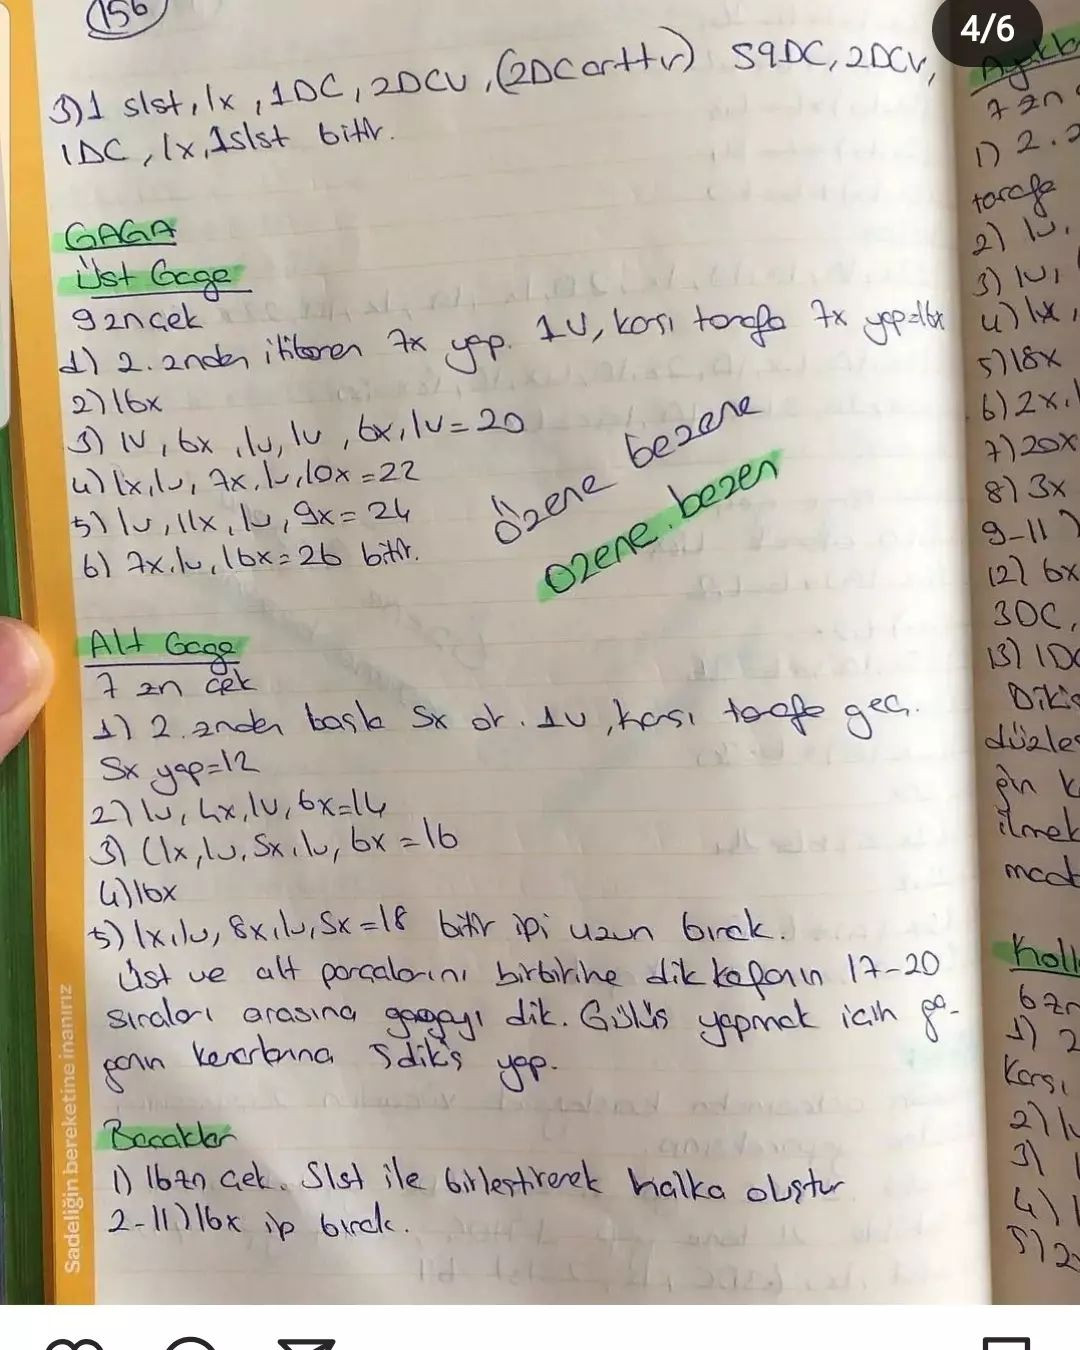 156
4/6
3) 1 slst, 1x, 1DC, 2DCV, (2DC arttır) 59DC, 2DCV,
1DC, 1x, 1slst bitir.
GAGA
Üst Gaga
9 zn çek
1) 2. znden itibaren 7x yap. 1V, karşı tarafa 7x yap=16x
2) 16x
3) 1V, 6x, 1v, 1v, 6x, 1v=20
4) 1x, 1v, 7x, 1v, 10x=22
5) 1v, 11x, 1v, 9x=24
6) 7x, 1v, 16x=26 bitir.
Özene bezene
özene bezen
Alt Gaga
7 zn çek
1) 2. znden başla 5x ör. 1v, karşı tarafa geç.
5x yap=12
2) 1v, 4x, 1v, 6x=14
3) (1x, 1v, 5x, 1v, 6x=16
4) 16x
5) 1x, 1v, 8x, 1v, 5x=18 bitir ipi uzun bırak.
Üst ve alt parçalarını birbirine dik kafanın 17-20
sıraları arasına gagayı dik. Gülüş yapmak için ga-
ganın kenarlarına 5 dikiş yap.
Bacaklar
1) 16zn çek. Slst ile birleştirerek halka oluştur
2-11) 16x ip bırak.
Sadeliğin bereketine inanırız
7 zn
1) 2.
tarafa
2) 1v,
3) 1v,
4) 1x,
5) 18x
6) 2x,
7) 20x
8) 3x
9-11)
12) 6x
3DC,
13) 1DC
Dikiş
Koll
6 zn
1) 2
Karşı
2) 1
3) 1
4) 1
5) 2